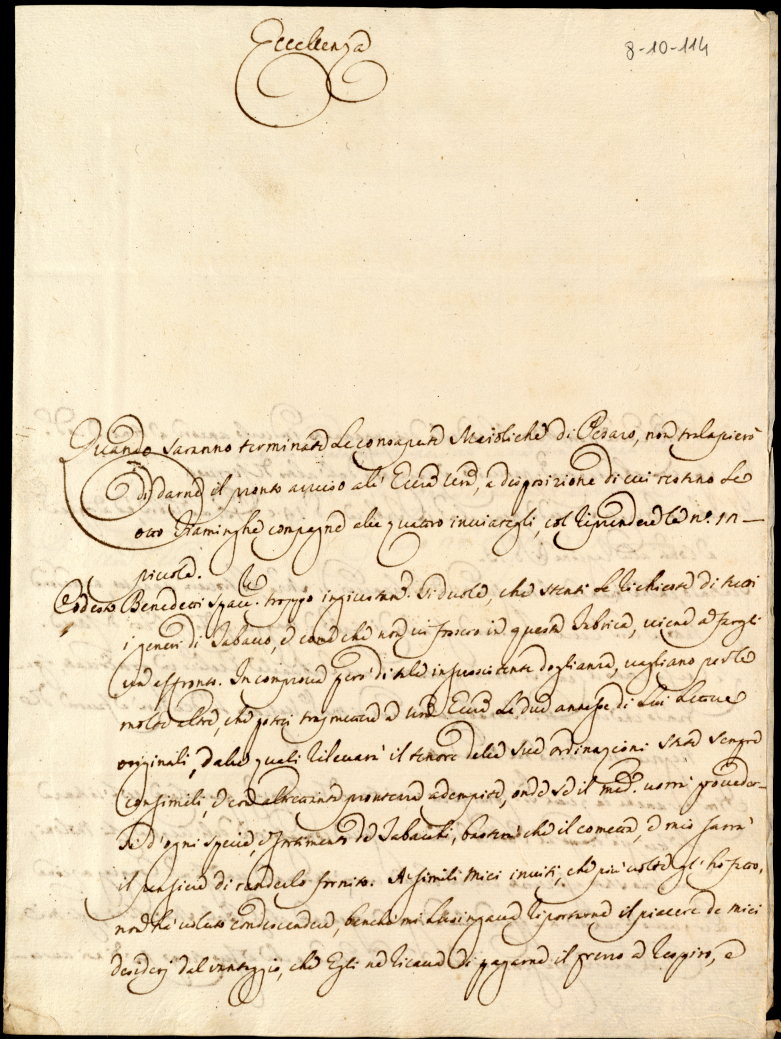 Eccellenza
8-10-114
Quando saranno terminate le consapute Maioliche di Pesaro, non tralascierò
di darne il pronto avviso all' Eccza Vrã, a disposizione di cui restino le
otto Fiaminghe compagne alle quattro inviategli, col riprendere le n.º in
piccole.
Codesto Benedetti Spacc.re troppo ingiustam.te si duole, che stenti le richieste di tutti
i generi di Tabacco, e come che non vi fossero in questa Fabrica, viene a fargli
un affronto. In comprova però di tale insussistente doglianza, vagliano per le
molte altre, che potrei trasmettere a Vrã Eccza le due annesse di lui Lettere
originali, dalle quali rileverà il tenore delle sue ordinazioni state sempre
consimili, ed con altrettanta prontezza adempite, onde se il med.º vorrà proveder-
si d'ogni specie, e sortimento de Tabacchi, basterà che il cometta, e mio sarrà
il pensiere di renderlo fornito. A simili miei inviti, che più volte gl' ho fatto,
non ha voluto condescendere, benche mi lusingava riportarne il piacere de miei
desiderj dal vantaggio, che Egli ne ricava di pagarne il prezzo a respiro, e